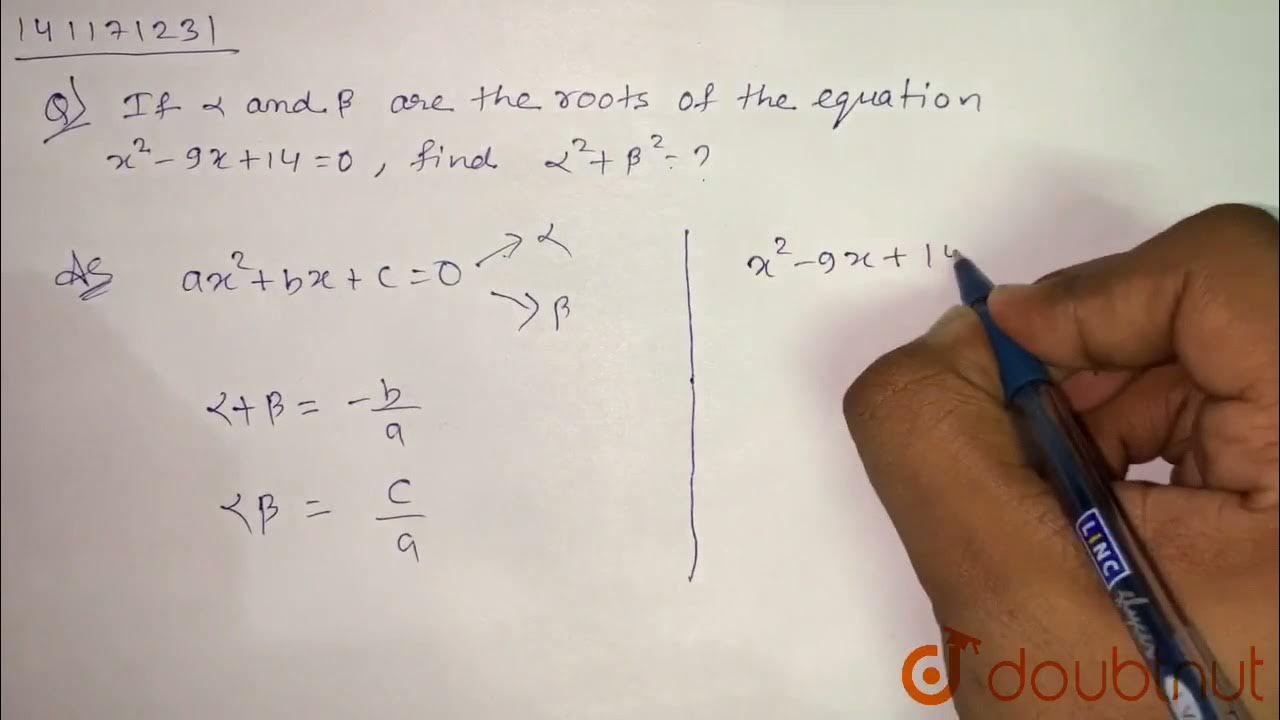 141171231
Q) If α and β are the roots of the equation
x² - 9x + 14 = 0, find α² + β² = ?
As ax² + bx + c = 0 → α
→ β
α + β = - b/a
αβ = c/a
x² - 9x + 14
LINC
doubtnut